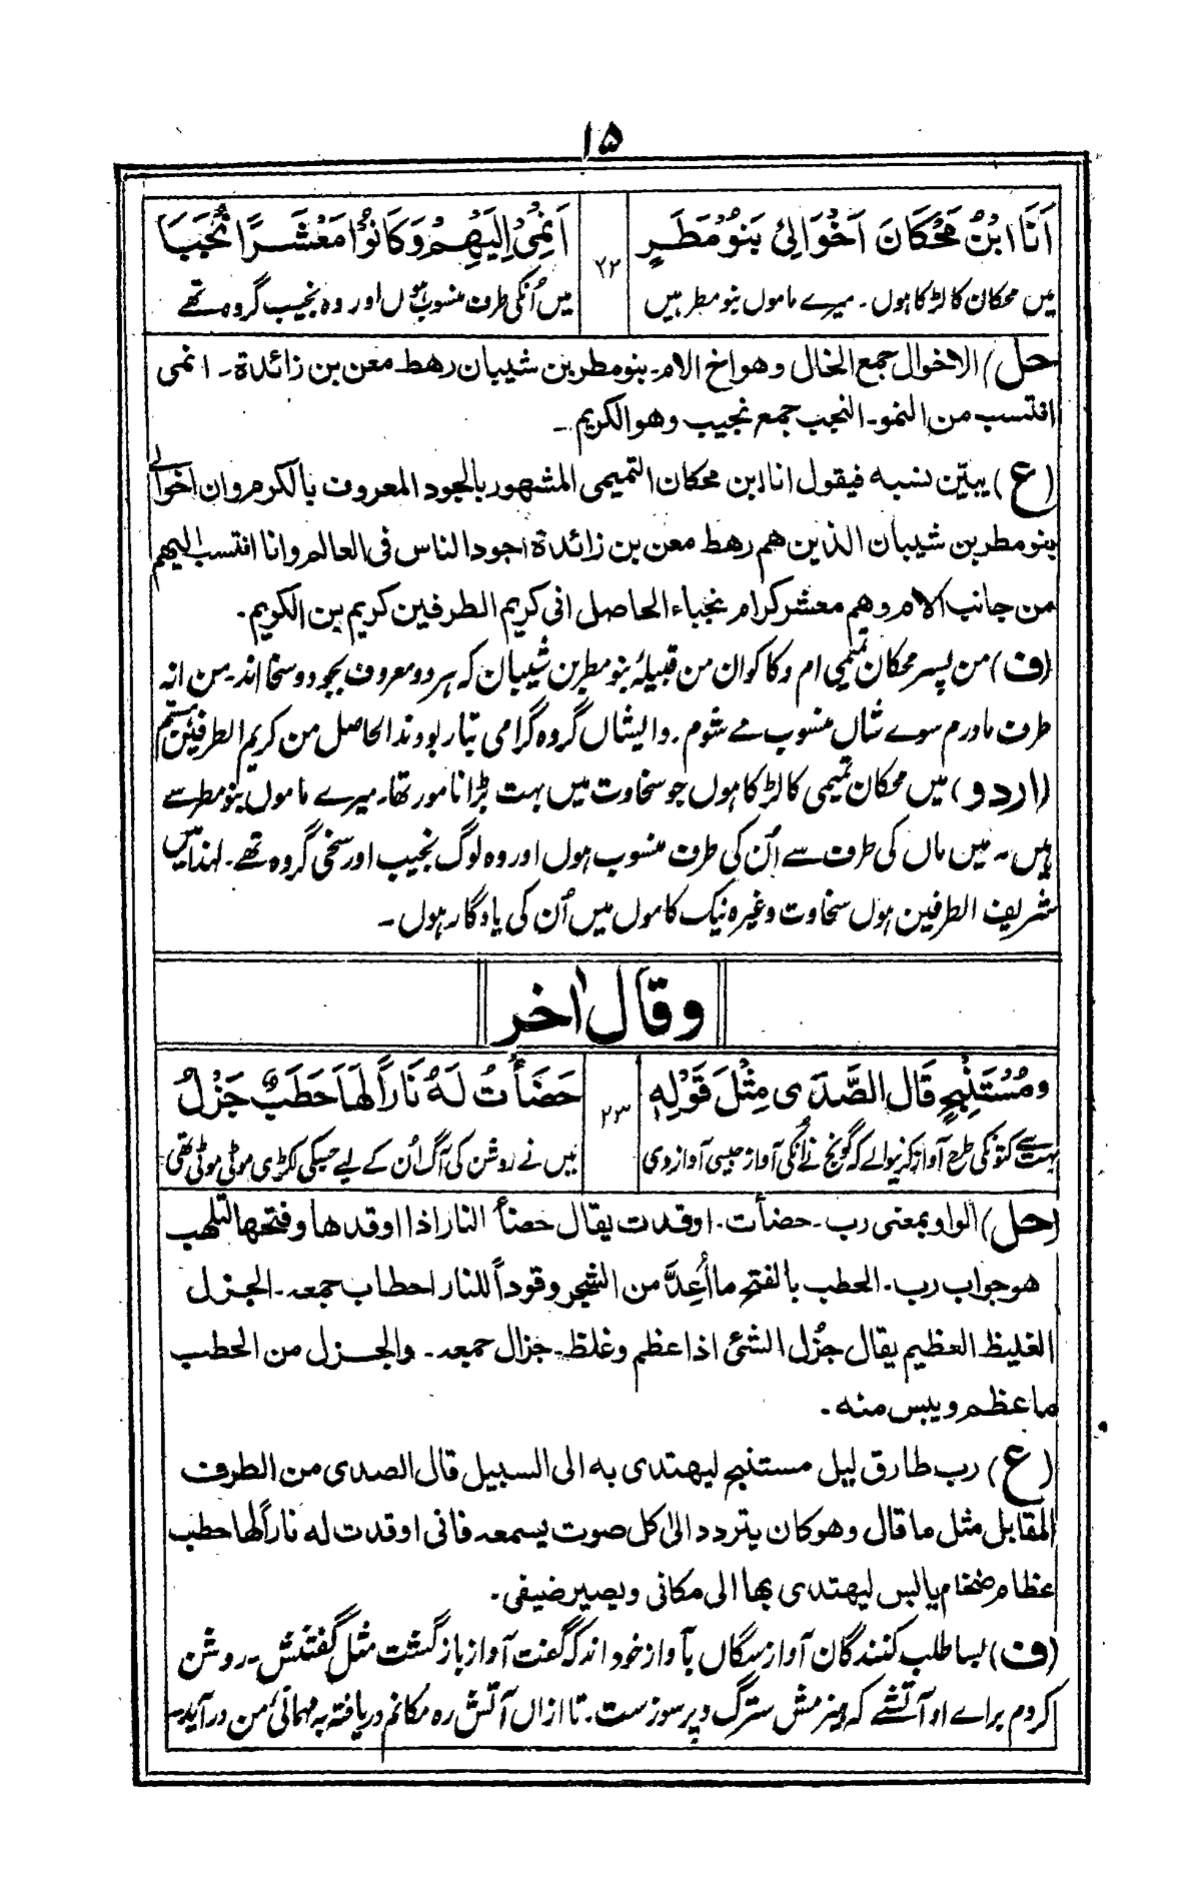 ۱۵
اَنَا ابْنُ مَحْكَانَ اَخْوَالِیْ بَنُوْ مُطَرٍ ۲۲ اَنْمِیْ اِلَیْهِمْ وَكَانُوْا مَعْشَرًا نُجُبَا
میں محکان کا لڑکا ہوں۔ میرے ماموں بنو مطر ہیں میں اُنکی طرف منسوب ہوں اور وہ نجیب گروہ تھے
(حل) الاخوال جمع الخال وهو اخ الام۔ بنو مطر بن شیبان رهط معن بن زائدة۔ انمی
انتسب من النمو۔ النجب جمع نجیب وهو الکریم۔
(ع) یبیّن نسبه فیقول انا ابن محکان التمیمی المشهور بالجود المعروف بالکرم وان اخوالی
بنو مطر بن شیبان الذین هم رهط معن بن زائدة اجود الناس فی العالم وانا انتسب الیهم
من جانب الام وهم معشر کرام نجباء الحاصل انی کریم الطرفین کریم بن الکریم۔
(ف) من پسر محکان تمیمی ام وکاکوان من قبیلۂ بنو مطر بن شیبان که هر دو معروف بجود و سخا اند۔ من از
طرف مادرم سوے شاں منسوب مے شوم۔ وایشاں گروه گرامی تبار بودند الحاصل من کریم الطرفین هستم
(اردو) میں محکان تمیمی کا لڑکا ہوں جو سخاوت میں بہت بڑا نامور تھا۔ میرے ماموں بنو مطر سے
ہیں۔ میں ماں کی طرف سے اُن کی طرف منسوب ہوں اور وہ لوگ نجیب اور سخی گروہ تھے۔ لہذا میں
شریف الطرفین ہوں سخاوت وغیرہ نیک کاموں میں اُن کی یادگار ہوں۔
وقال اٰخر
وَمُسْتَنْبِحٍ قَالَ الصَّدٰی مِثْلَ قَوْلِهٖ ۲۳ حَضَأْتُ لَهٗ نَارًا لَهَا حَطَبٌ جَزْلُ
بہت سے کتوں کی طرح آواز کرنیوالے کہ گونج نے اُنکی آواز جیسی آواز دی میں نے روشن کی آگ اُن کے لیے جسکی لکڑی موٹی موٹی تھی
(حل) الواو بمعنی رب۔ حضأت۔ اوقدت یقال حضأ النار اذا اوقدها وفتحها لتلهب
هو جواب رب۔ الحطب بالفتح ما أُعِدَّ من الشجر وقوداً للنار احطاب جمعه۔ الجزل
الغلیظ العظیم یقال جزُل الشئ اذا عظم وغلظ۔ جزال جمعه۔ والجزل من الحطب
ما عظم ویبس منه۔
(ع) رب طارق لیل مستنبح لیهتدی به الی السبیل قال الصدی من الطرف
المقابل مثل ما قال وهو کان یتردد الیٰ کل صوت یسمعه فانی اوقدت له ناراً لها حطب
عظام ضخام یابس لیهتدی بها الی مکانی ویصیر ضیفی۔
(ف) بسا طلب کنندگان آواز سگاں بآواز خود اند که گفت آواز بازگشت مثل گفتنش۔ روشن
کردم براے او آتشے که هیزمش سترگ و پرسوزست۔ تا ازاں آتش ره مکانم دریافته به مهمانئ من درآید۔